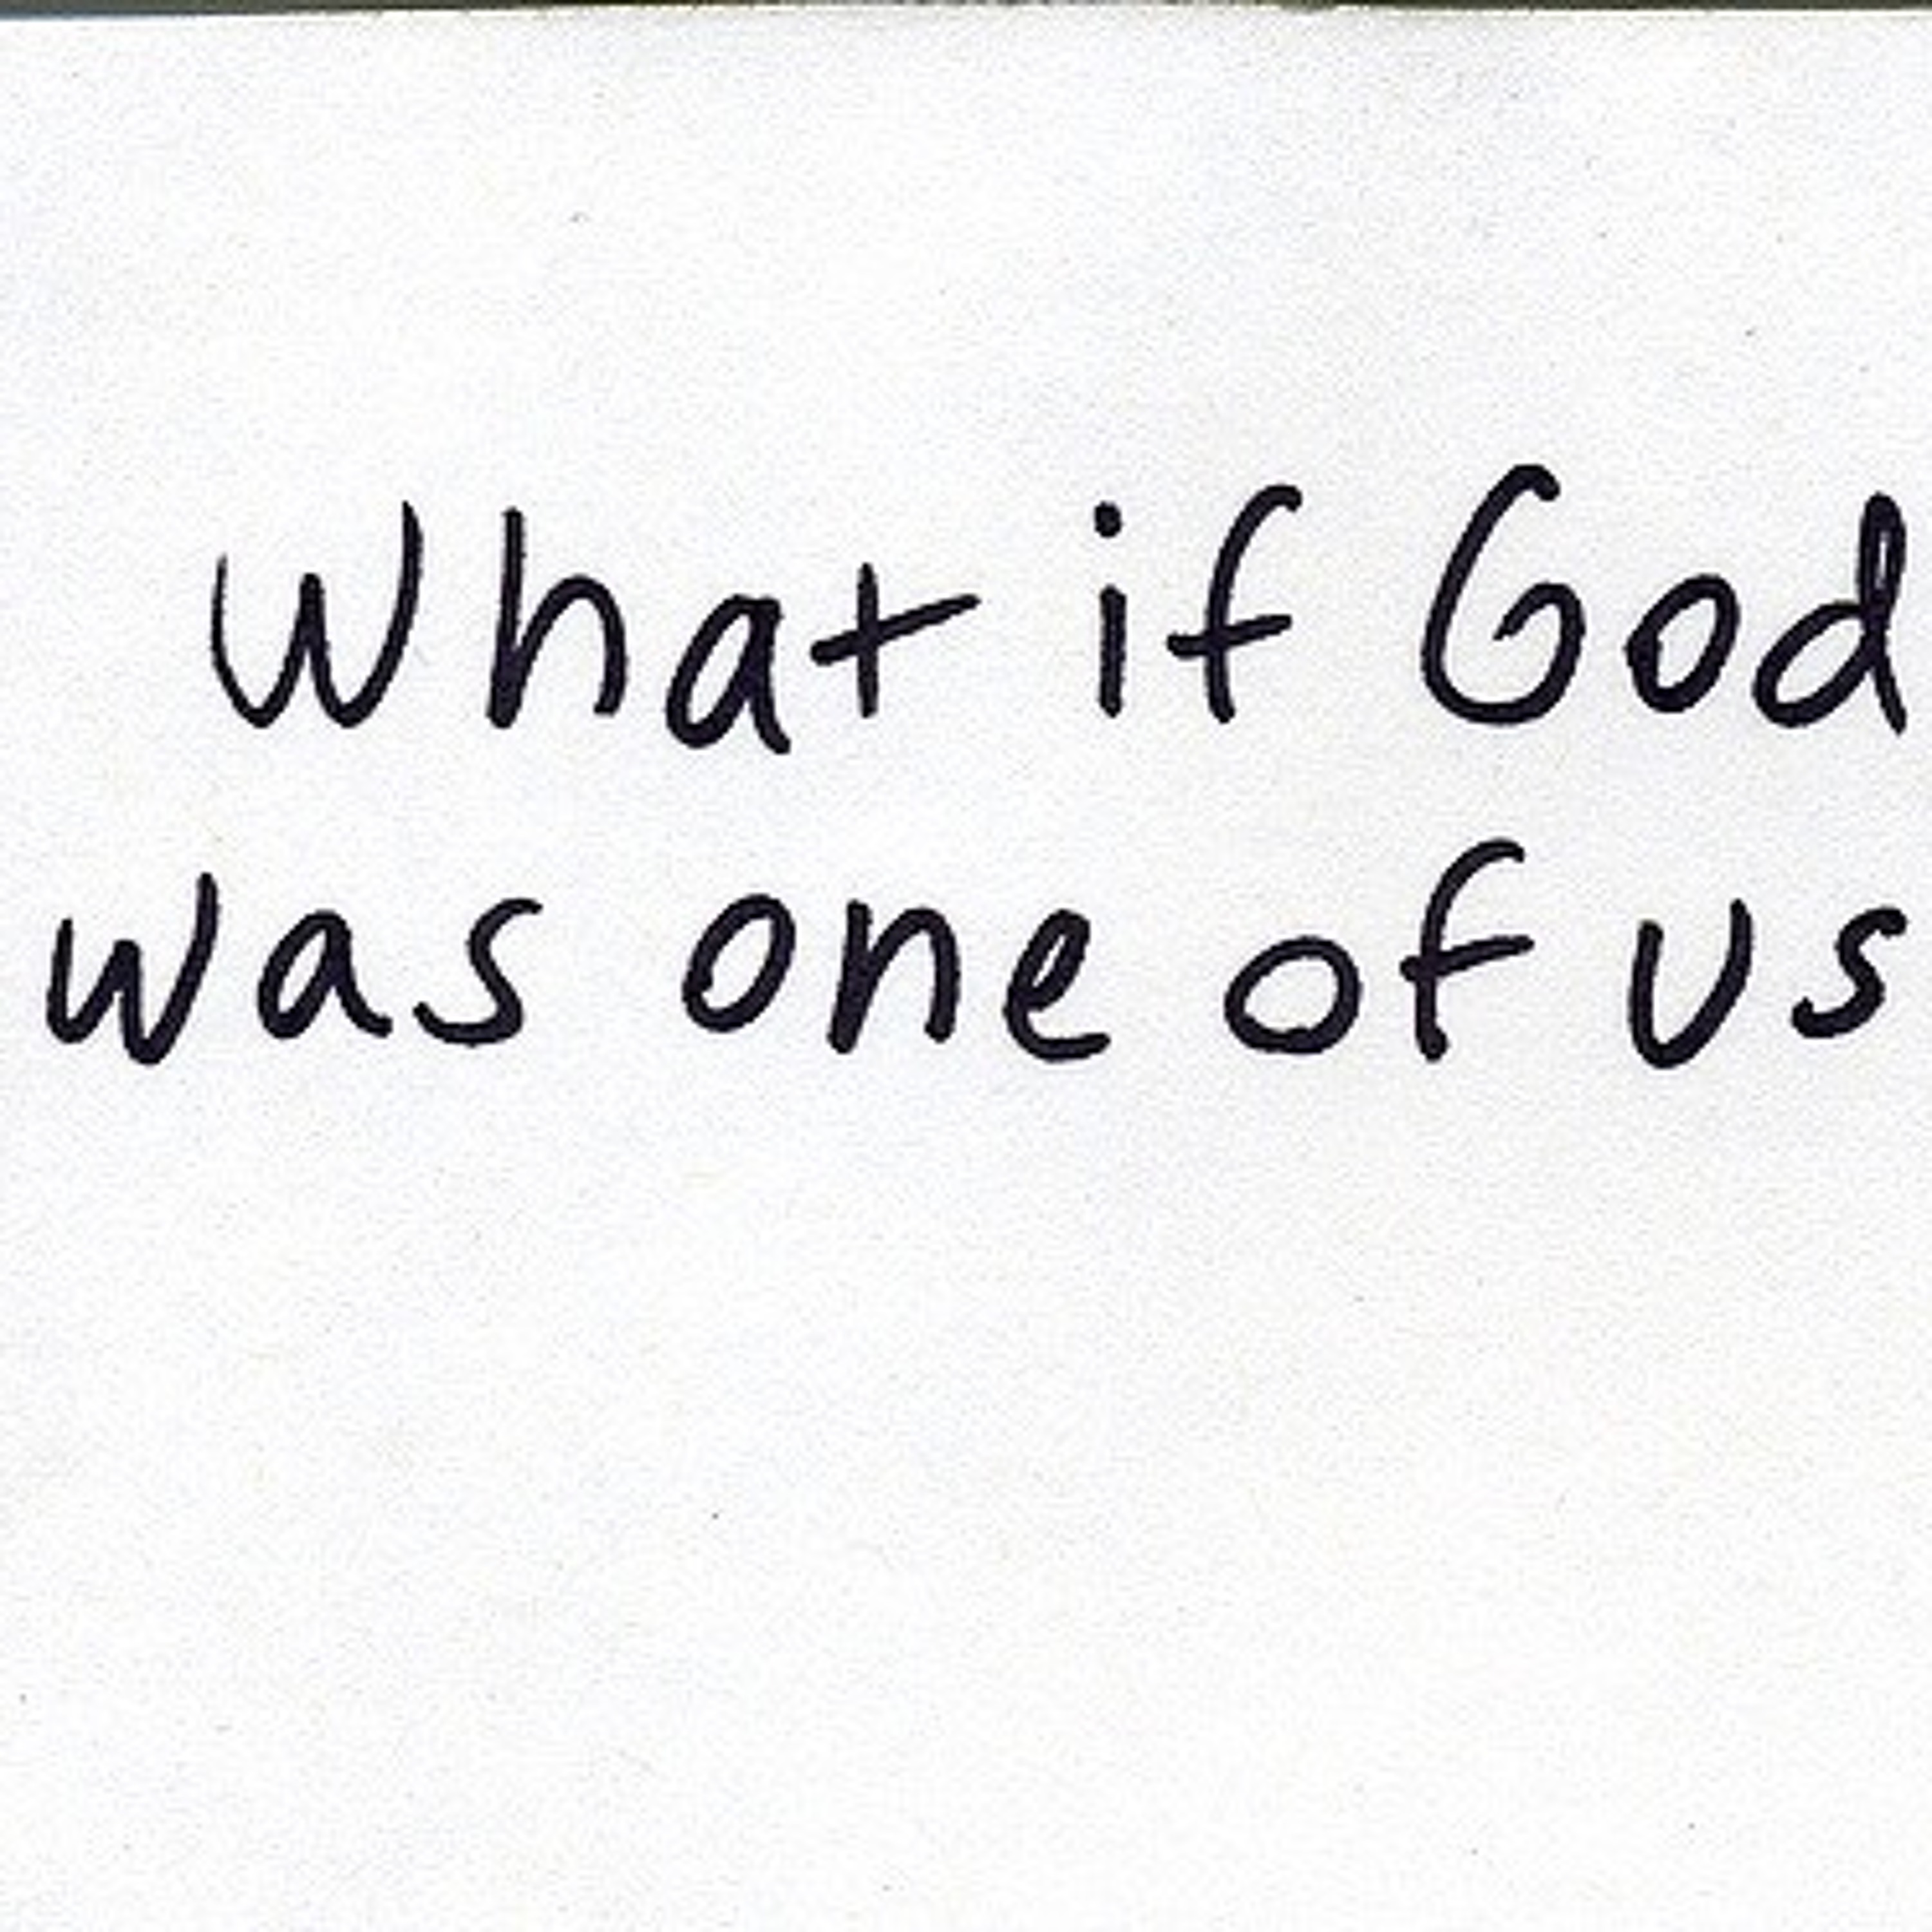 What if God
was one of us